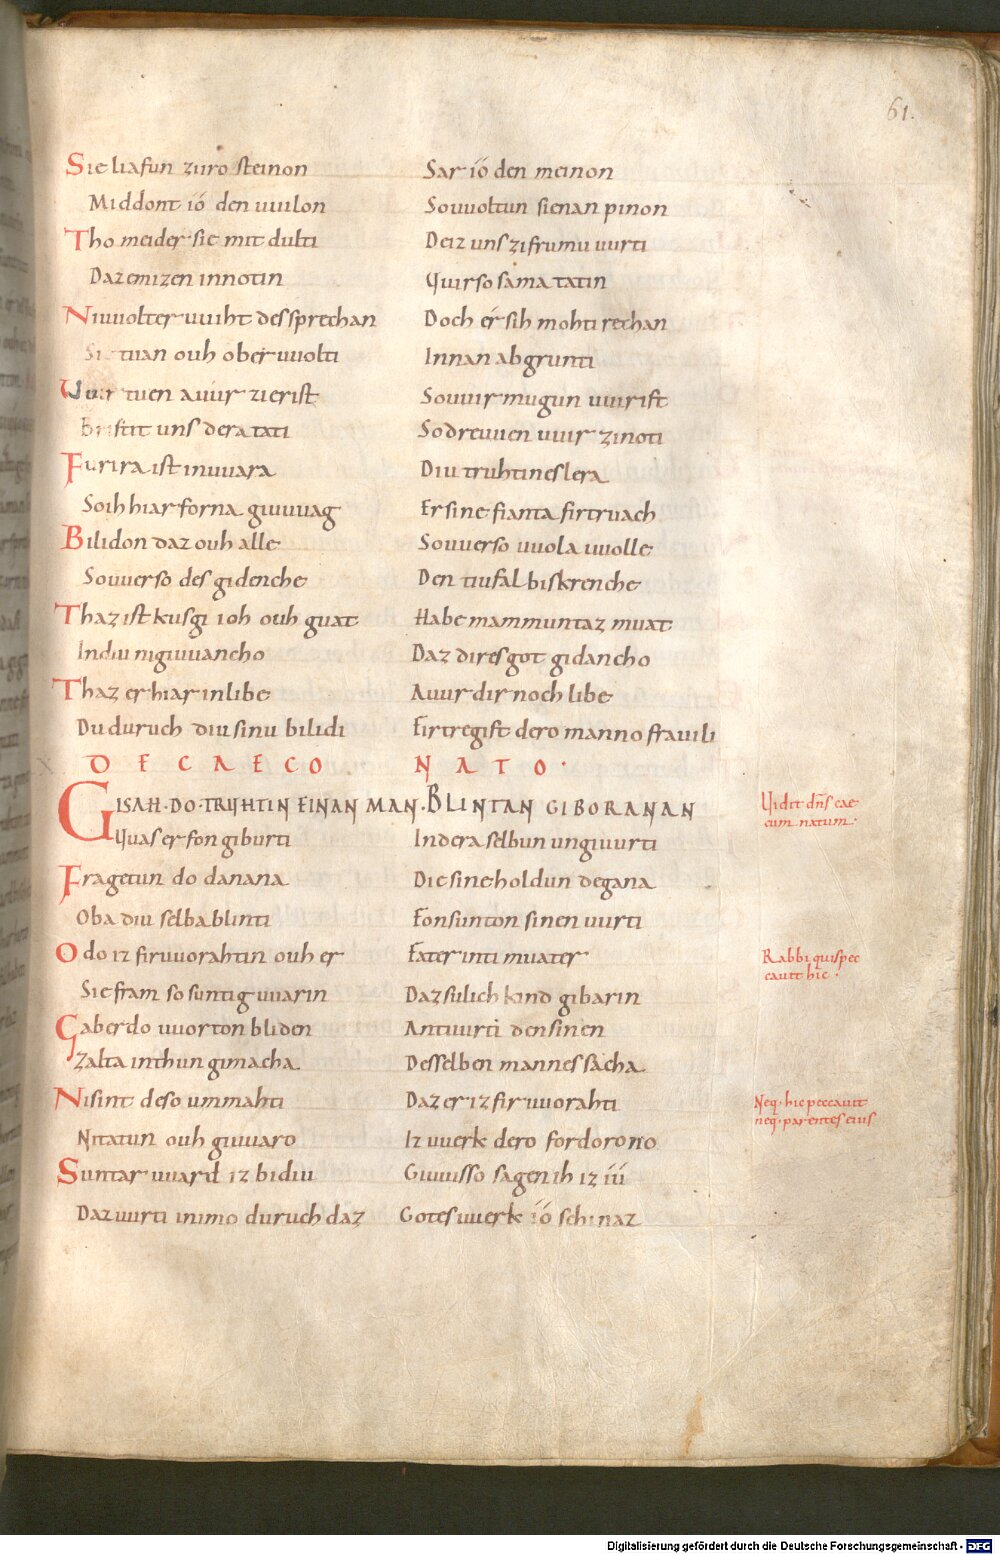 61.
Sie liafun zuro steinon Sar ió den meinon
Middont ió den uuilon Souuoltun sienan pinon
Tho meider sie mit dulti Deiz uns zifrumu uurti
Daz emizen innotin Quir so sama tatin
Niuuolter uuiht des sprechan Doch ér sih mohti rechan
Sie tuan ouh ober uuolti Innan abgrunti
Uuir tuen auur zi erist Souuir mugun uuirist
Bristit uns dera tati Sodreuuen uuir zinoti
Furira ist inuuara Diu truhtines lera
Soih hiar forna giuuuag Er sine fianta firtruach
Bilidon daz ouh alle Souuerso uuola uuolle
Souuerso des gidenche Den tiufal biskrenche
Thaz ist kusgi ioh ouh guat Habe mammuntaz muat
Indiu nigiuuancho Daz dires got gidancho
Thaz er hiar inlibe Auur dir noch libe
Du duruch diu sinu bilidi Firtregist dero manno frauili
DE CAECO NATO.
GISAH·DO·TRUHTIN EINAN MAN·BLINTAN GIBORANAN
Uidit dn̄s cae
cum natum.
Quas er fon giburti Indera selbun ungiuurti
Fragetun do danana Die sine holdun degana
Oba diu selba blinti Fon sunton sinen uurti
Odo iz firuuorahtin ouh er Fater inti muater
Rabbi quis pec
cauit hic.
Sie fram so suntig uuarin Daz sulich kind gibarin
Gaber do uuorton bliden Antuurti den sinen
Zalta in thun gimacha Desselben mannes sácha
Nisint deso ummahti Daz er iz firuuorahti
Neq· hic peccauit
neq· parentes eius
Nitatun ouh giuuaro Iz uuerk dero fordorono
Suntar uuard iz bidiu Giuuisso sagen ih iz iú
Daz uurti inimo duruch daz Gotes uuerk ió schinaz
Digitalisierung gefördert durch die Deutsche Forschungsgemeinschaft - DFG